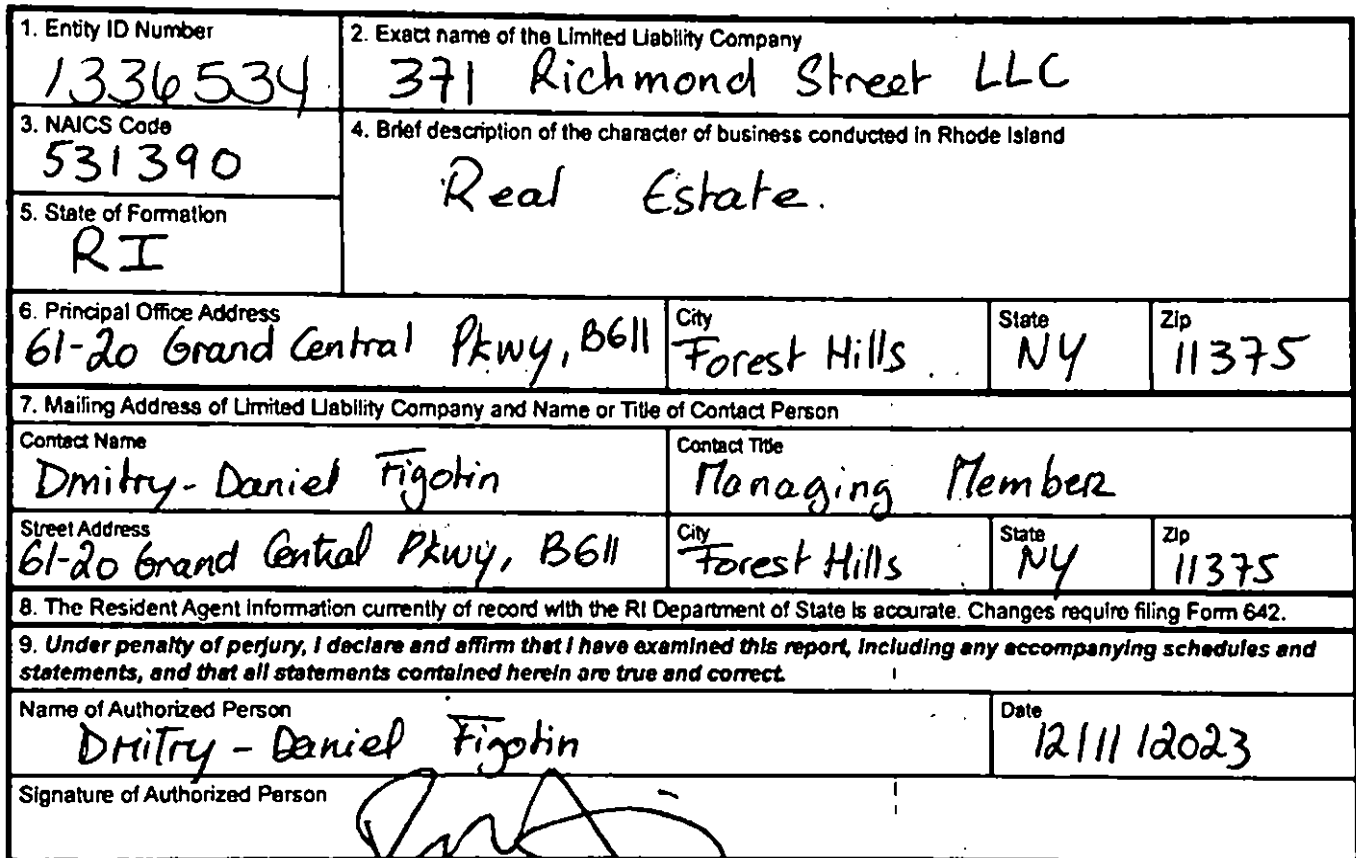 1. Entity ID Number
1336534
2. Exact name of the Limited Liability Company
371 Richmond Street LLC
3. NAICS Code
531390
4. Brief description of the character of business conducted in Rhode Island
Real Estate.
5. State of Formation
RI
6. Principal Office Address
61-20 Grand Central Pkwy, B611
City
Forest Hills
State
NY
Zip
11375
7. Mailing Address of Limited Liability Company and Name or Title of Contact Person
Contact Name
Dmitry-Daniel Figotin
Contact Title
Managing Member
Street Address
61-20 Grand Central Pkwy, B611
City
Forest Hills
State
NY
Zip
11375
8. The Resident Agent information currently of record with the RI Department of State is accurate. Changes require filing Form 642.
9. Under penalty of perjury, I declare and affirm that I have examined this report, including any accompanying schedules and
statements, and that all statements contained herein are true and correct.
Name of Authorized Person
Dmitry - Daniel Figotin
Date
12/11/2023
Signature of Authorized Person